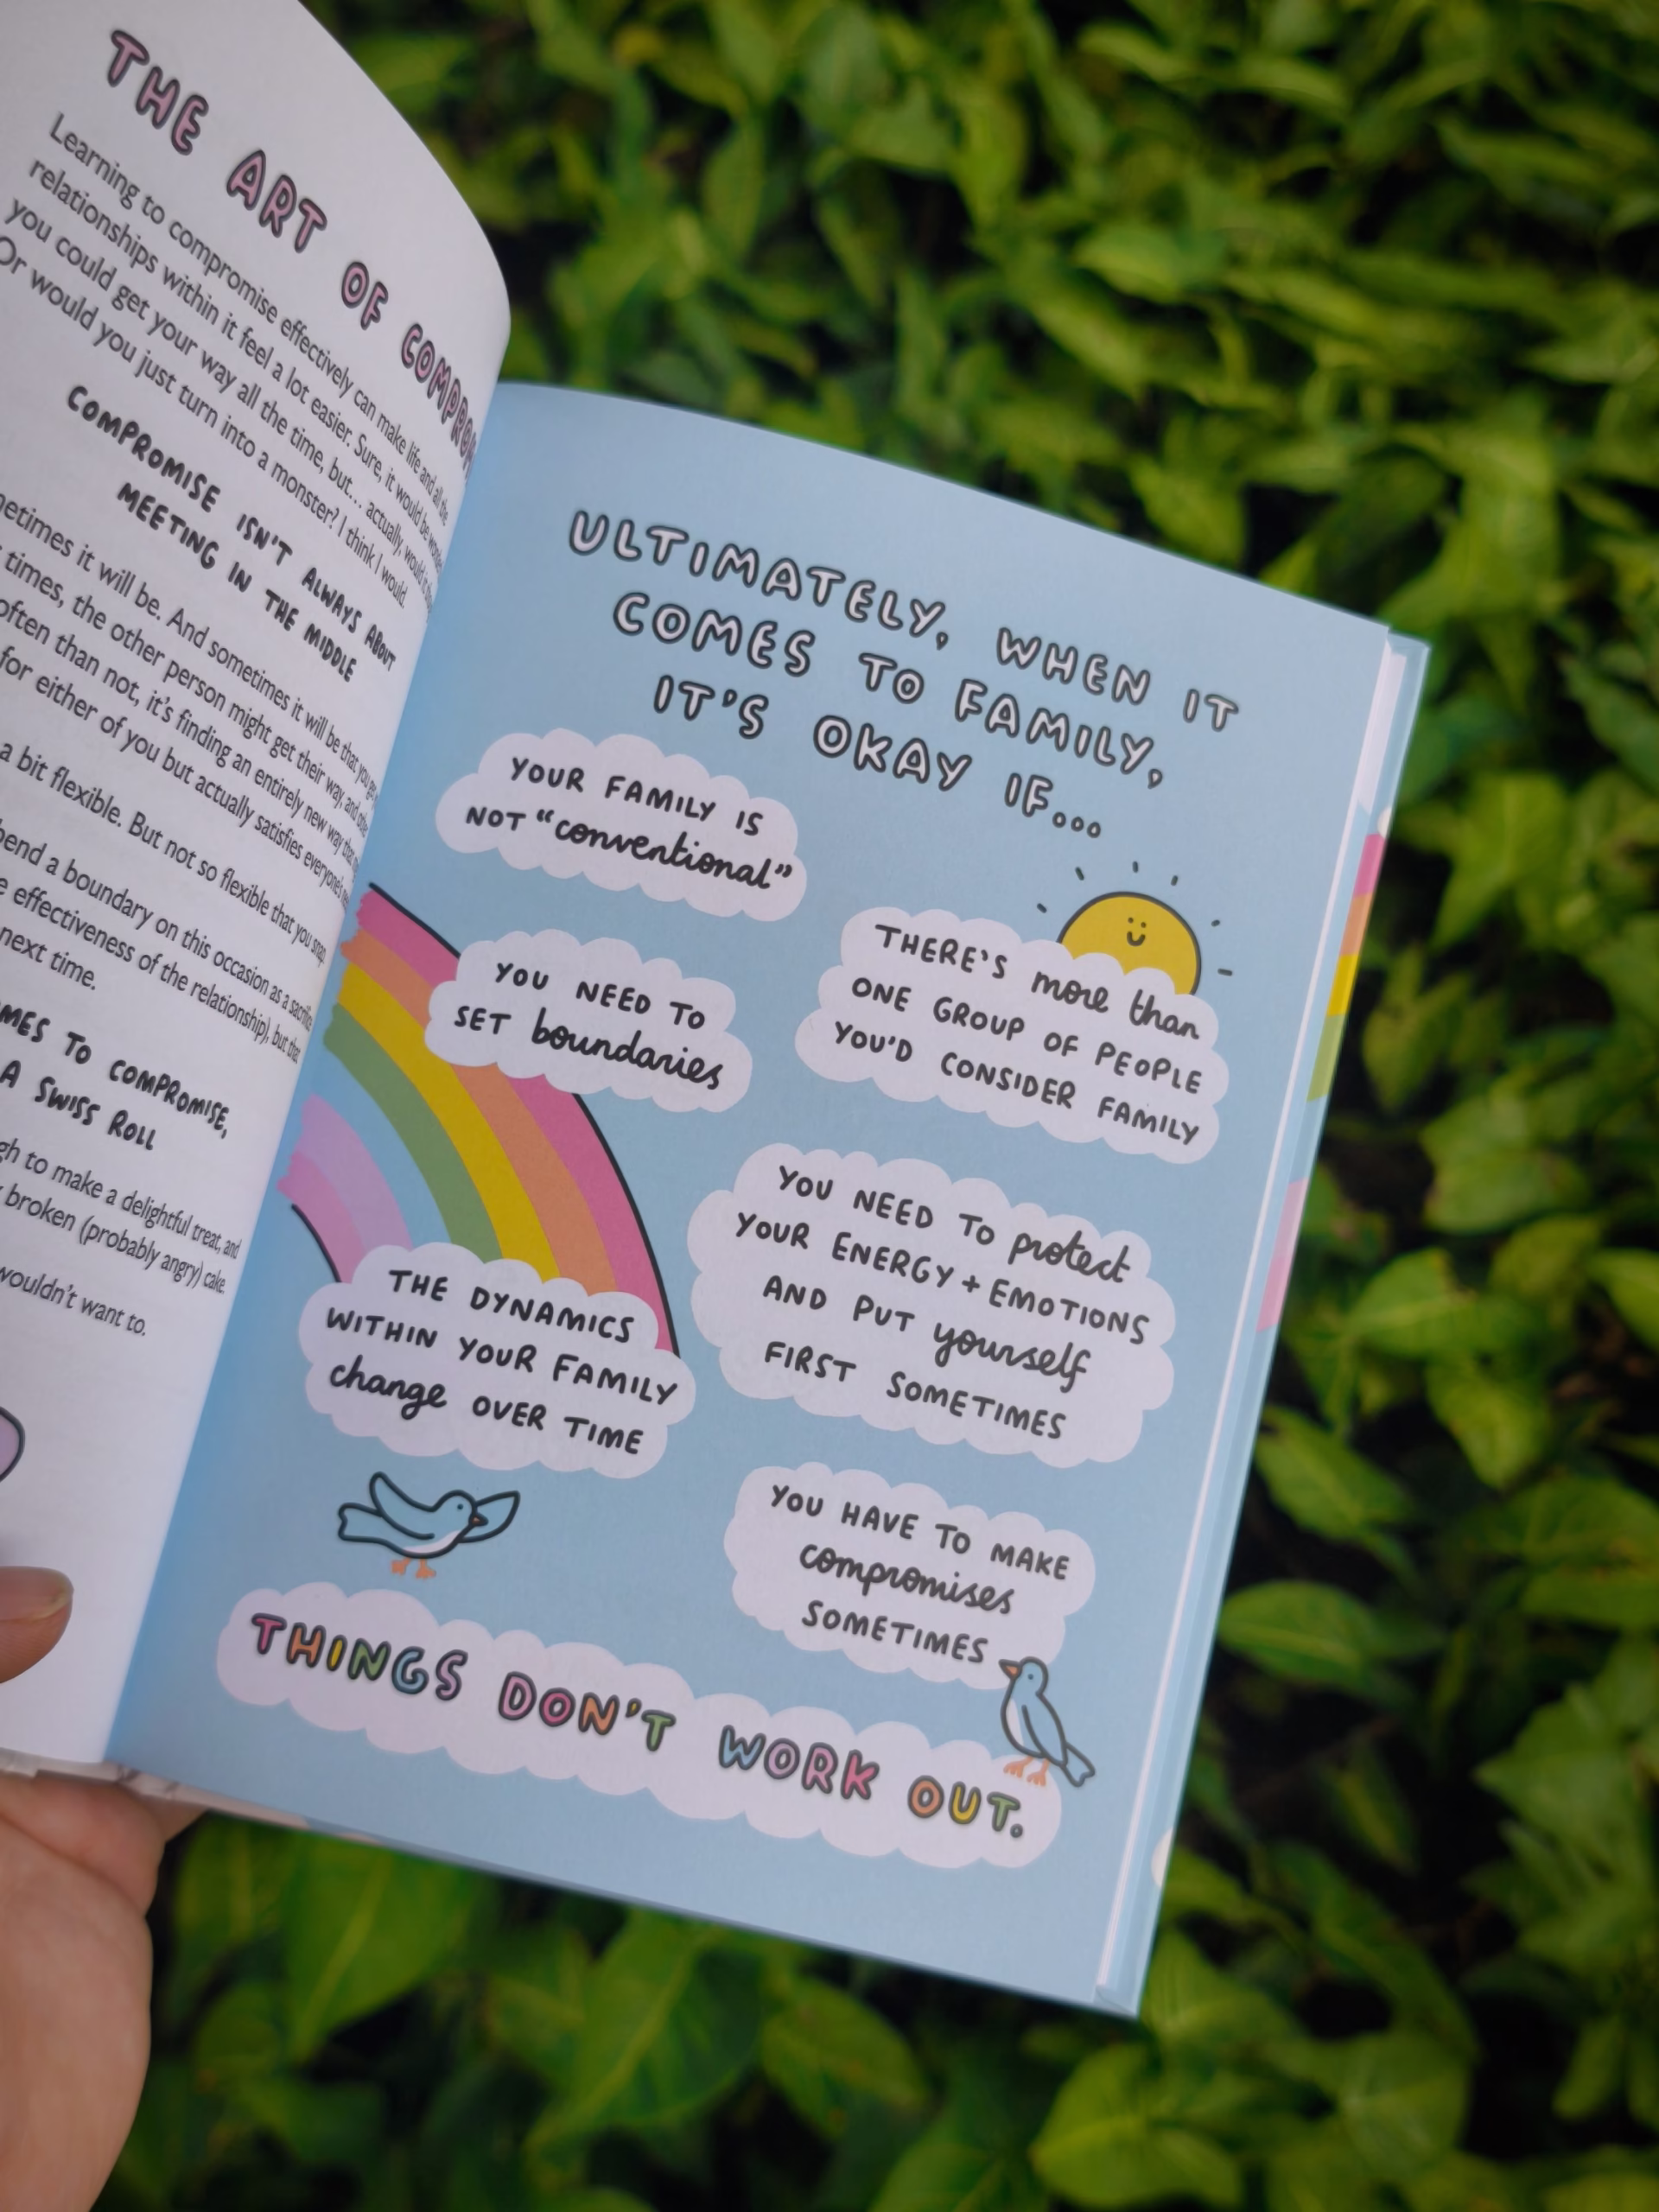 THE ART OF
Learning to compromise effectively can make life and all the
relationships within it feel a lot easier. Sure, it would be
you could get your way all the time, but... actually, would
Or would you just turn into a monster? I think I would.
COMPROMISE ISN'T ALWAYS ABOUT
MEETING IN THE MIDDLE
it will be. And sometimes it will be that you get
times, the other person might get their way, and
often than not, it's finding an entirely new way that
for either of you but actually satisfies everyone's
a bit flexible. But not so flexible that you snap
a boundary on this occasion as a
effectiveness of the relationship), but that
next time.
TO COMPROMISE,
A SWISS ROLL
to make a delightful treat, and
broken (probably angry) cake.
wouldn't want to.
ULTIMATELY, WHEN IT
COMES TO FAMILY,
IT'S OKAY IF...
YOUR FAMILY IS
NOT "conventional"
THERE'S more than
ONE GROUP OF PEOPLE
YOU'D CONSIDER FAMILY
YOU NEED TO
SET boundaries
YOU NEED TO protect
YOUR ENERGY + EMOTIONS
AND PUT yourself
FIRST SOMETIMES
THE DYNAMICS
WITHIN YOUR FAMILY
change OVER TIME
YOU HAVE TO MAKE
compromises
SOMETIMES
THINGS DON'T WORK OUT.